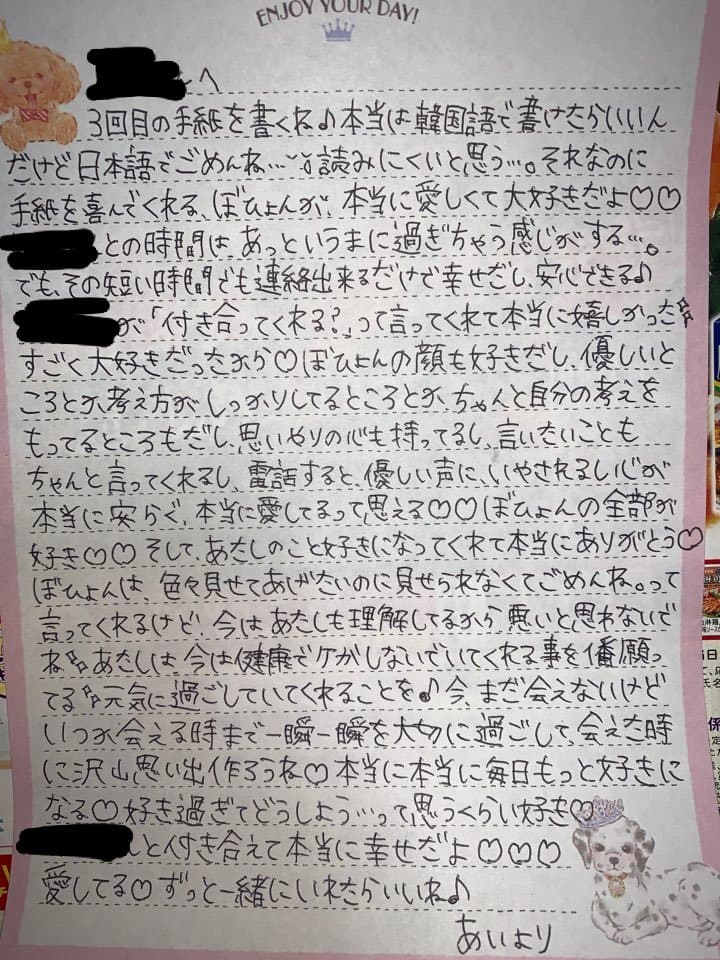 ENJOY YOUR DAY!
へ
3回目の手紙を書くね♪本当は韓国語で書けたらいいん
だけど日本語でごめんね…読みにくいと思う…。それなのに
手紙を喜んでくれる、ぼひょんが、本当に愛しくて大好きだよ♡♡
との時間は、あっというまに過ぎちゃう感じがする…。
でも、その短い時間でも連絡出来るだけで幸せだし、安心できる♪
が「付き合ってくれる?」って言ってくれて本当に嬉しかった
すごく大好きだったから♡ぼひょんの顔も好きだし、優しいと
ころとか、考え方が、しっかりしてるところとか、ちゃんと自分の考えを
もってるところもだし、思いやりの心も持ってるし、言いたいことも
ちゃんと言ってくれるし、電話すると、優しい声に、いやされるし心が
本当に安らぐ、本当に愛してるって思える♡♡ぼひょんの全部が
好き♡♡そして、あたしのこと好きになってくれて本当にありがとう♡
ぼひょんは、色々見せてあげたいのに見せられなくてごめんね。って
言ってくれるけど、今はあたしも理解してるから悪いと思わないで
ね あたしは今は健康でケガしないでいてくれる事を1番願っ
てる 元気に過ごしていてくれることを♪今、まだ会えないけど
いつか会える時まで一瞬一瞬を大切に過ごして、会えた時
に沢山思い出作ろうね♡本当に本当に毎日もっと好きに
なる♡好き過ぎてどうしよう…って思うくらい好き♡
んと付き合えて本当に幸せだよ♡♡♡
愛してる♡ずっと一緒にいれたらいいね♪
あいより